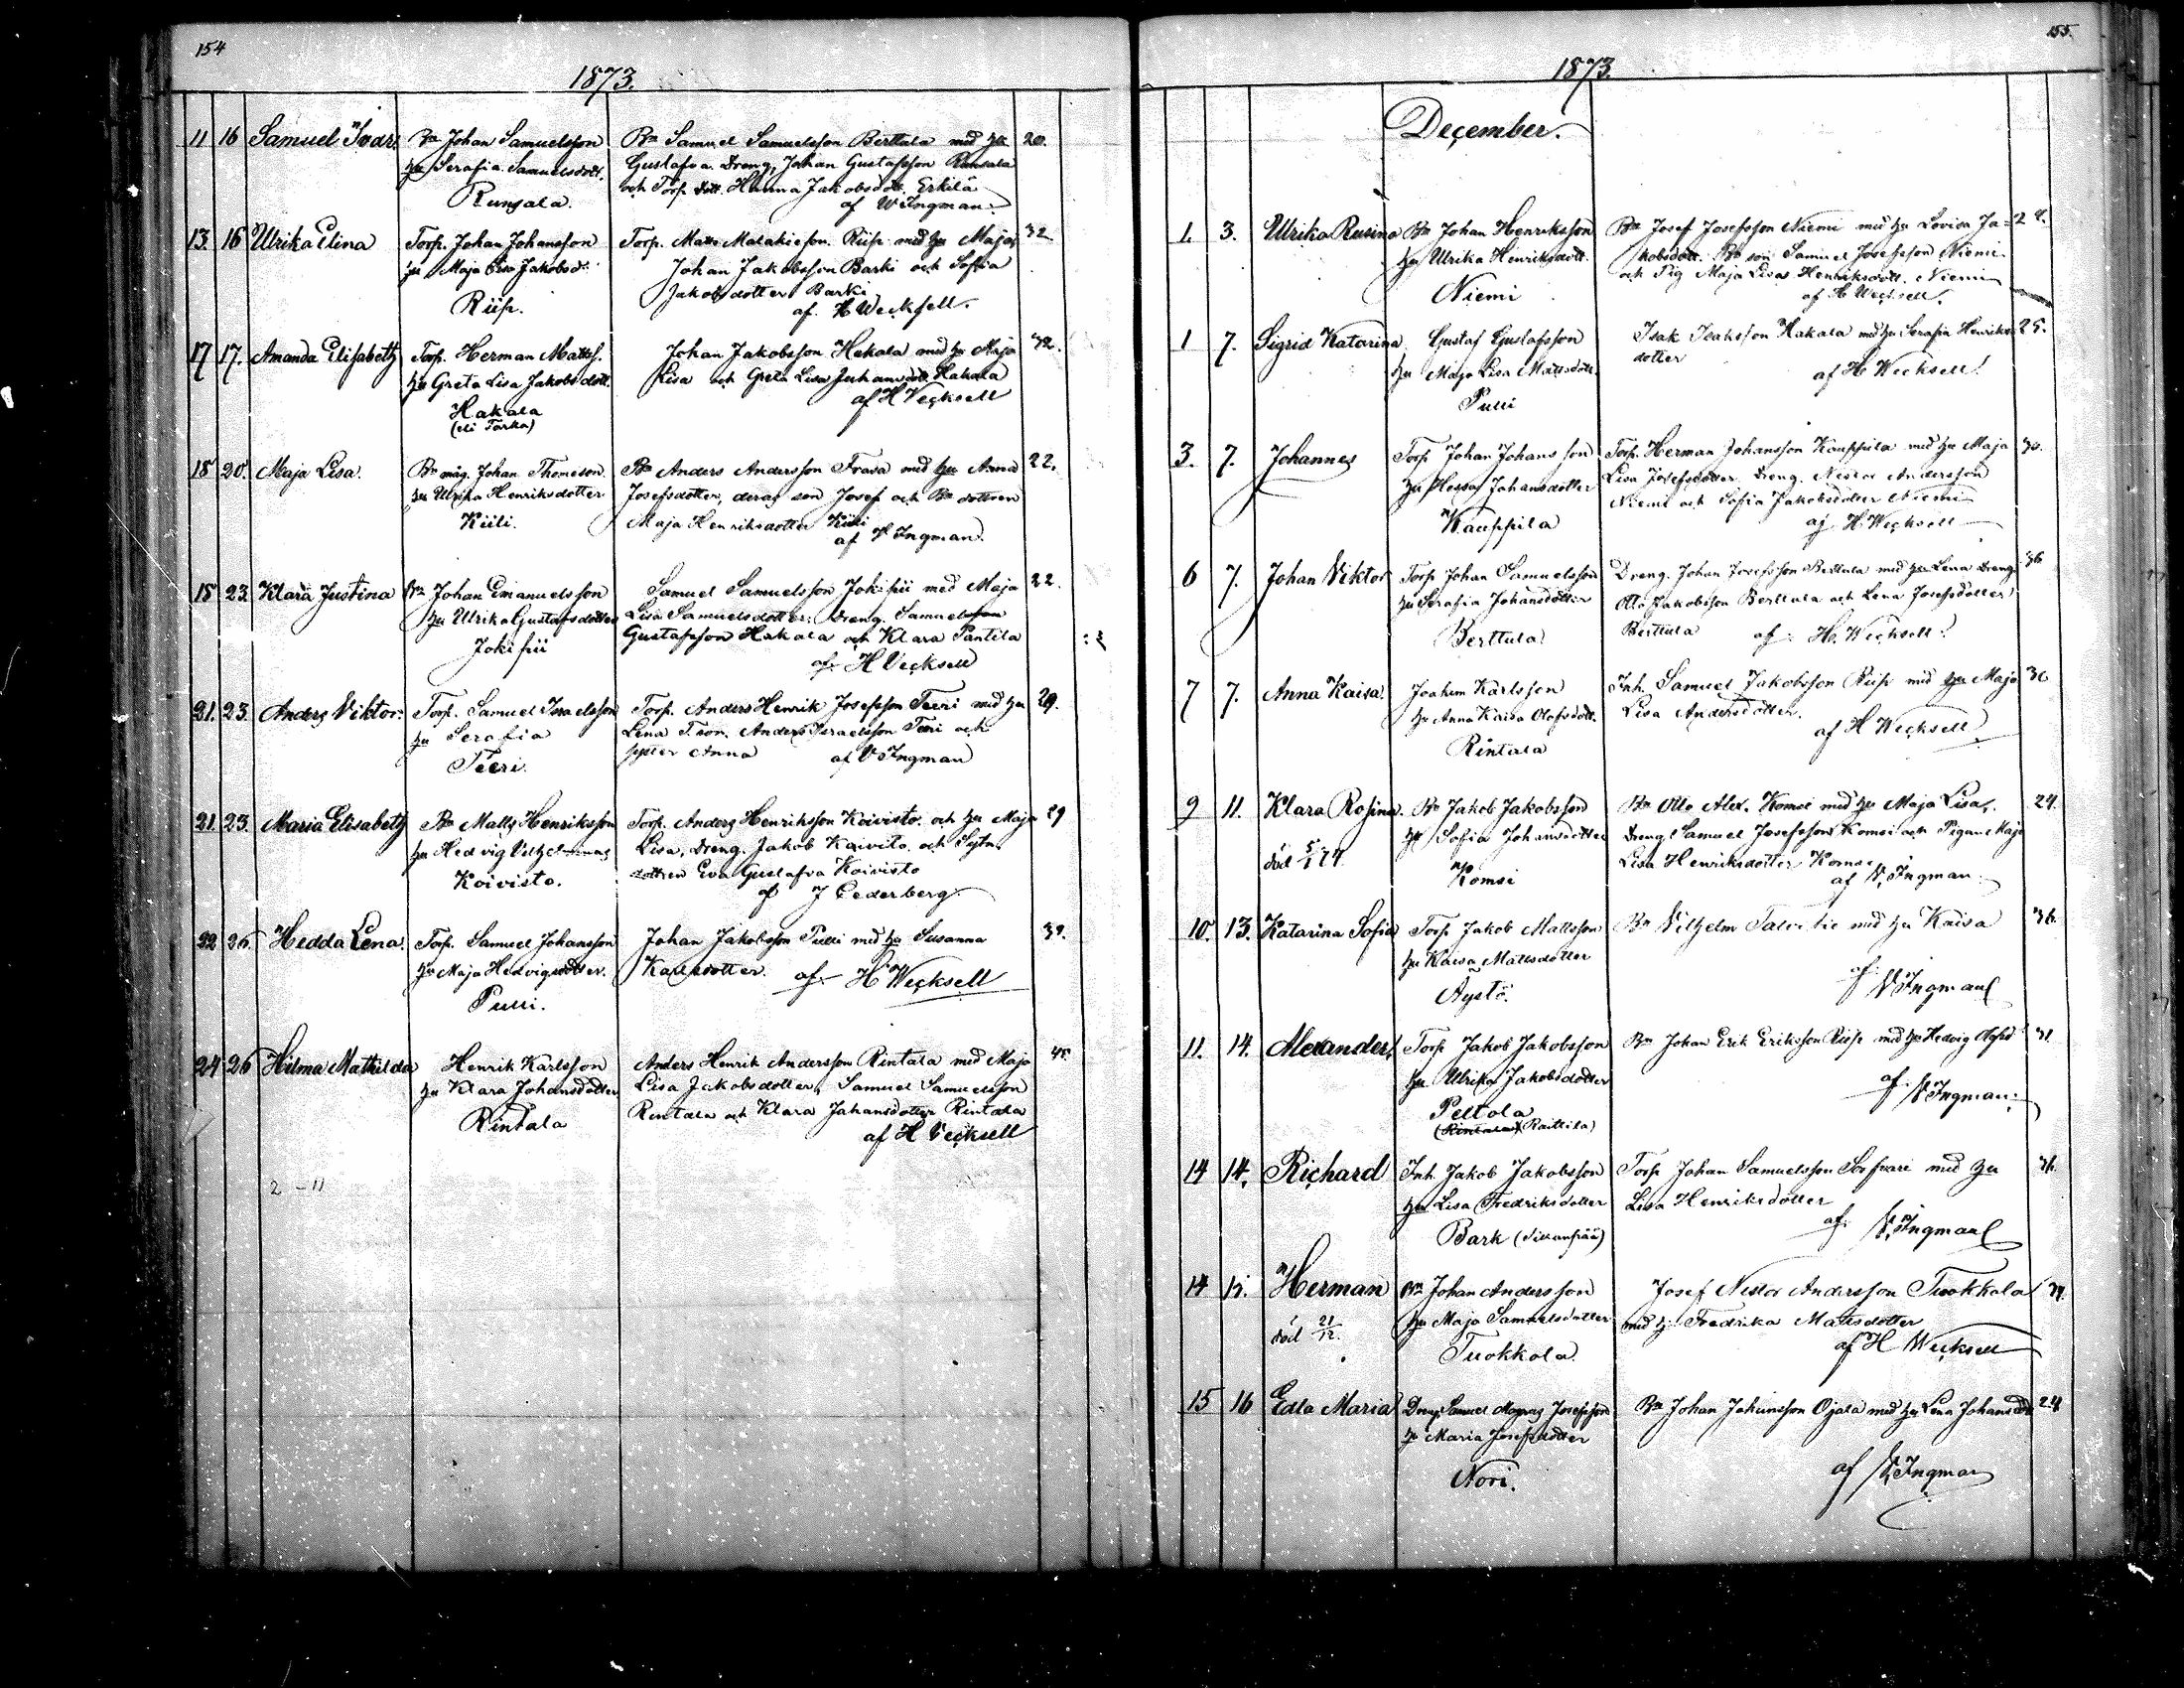 154
1873.
11 16 Samuel Ivar Bn Johan Samuelsson Bn Samuel Samuelsson Berttala med hu 20.
hu Serafia Samuelsdott. Gustafva. Dreng. Johan Gustafsson Runsala
Runsala. och Torp. dott. Hanna Jakobsdott. Erkilä
af W Ingman.
13. 16 Ulrika Elina Torp. Johan Johansson Torp. Matts Malakieson. Riip med hu Maja 32
hu Maja Lisa Jakobsd. Johan Jakobsson Barki och Sofia
Riip. Jakobsdotter Barki
af H Wecksell.
17 17. Amanda Elisabeth Torp. Herman Matts. Johan Jakobsson Hakala med hu Maja 32.
hu Greta Lisa Jakobsdott. Lisa och Greta Lisa Johansdott Hakala
Hakala af H Vecksell
(eli Torka)
18 20. Maja Lisa. Bn måg. Johan Thomeson. Bn Anders Andersson Frava med hu Anna 22.
hu Ulrika Henriksdotter Josefsdotter, deras son Josef och Bn dottren
Kiili. Maja Henriksdotter Kiili
af V Ingman.
18 23 Klara Justina Bn Johan Emanuelsson Samuel Samuelsson Jokipii med Maja 22.
hu Ulrika Gustafsdotter Lisa Samuelsdotter; Dreng. Samuelsson
Jokipii Gustafsson Hakala och Klara Pantila
af H Vecksell
21. 23. Anders Viktor. Torp. Samuel Israelsson Torp. Anders Henrik Josefsson Teeri med hu 29.
hu Serafia Lena T. son. Anders Israelsson Teeri och
Teeri. syster Anna af V Ingman
21. 23. Maria Elisabeth Bn Matts Henriksson Torp. Anders Henriksson Koivisto och hu Maja 29
hu Hedvig Vilhelmina Lisa, Dreng. Jakob Koivisto och Sytn.
Koivisto. dottren Eva Gustafva Koivisto
af J Cederberg.
22 26. Hedda Lena. Torp. Samuel Johansson Johan Jakobsson Pulli med hu Susanna 39.
hu Maja Hedvigsdotter. Karlsdotter. af H Wecksell
Pulli.
24 26 Hilma Mathilda Henrik Karlsson Anders Henrik Andersson Rintala med Maja 45.
hu Klara Johansdotter Lisa Jakobsdotter, Samuel Samuelsson
Rintala Rintala och Klara Johansdotter Rintala
af H Vecksell
2 - 11
155.
1873.
December.
1. 3. Ulrika Rusina Bn Johan Henriksson Bn Josef Josefsson Niemi med hu Lovisa Ja=
hu Ulrika Henriksdott. kobsdott. Bn son Samuel Josefsson Niemi
Niemi och Pig Maja Lisa Henriksdott. Niemi
af H Wecksell.
1 7. Sigrid Katarina Gustaf Gustafsson Isak Isaksson Hakala med hu Serafia Henriks 25.
hu Maja Lisa Mattsdott. dotter
Pulli af H Wecksell.
3. 7. Johannes Torp Johan Johansson Torp. Herman Johansson Kauppila med hu Maja 30.
hu Johansdotter Lisa Josefsdotter Dreng. Nestor Andersson
Kauppila Niemi och Sofia Jakobsdotter Niemi
af H. Wecksell
6 7. Johan Viktor Torp Johan Samuelsson Dreng. Johan Josefsson Berttula med hu Lena Dreng 36
hu Serafia Johansdotter Otto Jakobsson Berttula och Lena Josefsdotter
Berttula Berttula af H. Wecksell.
7 7. Anna Kaisa. Joakim Karlsson Inh. Samuel Jakobsson Riip med hu Maja 30
hu Anna Kaisa Olofsdott. Lisa Andersdotter.
Rintala af H Wecksell
9 11. Klara Rosina. Bn Jakob Jakobsson Bn Otto Alex. Komsi med hu Maja Lisa,
hu Sofia Johansdotter Dreng Samuel Josefsson Komsi och Pigan Maja
död 5/1 74 Komsi Lisa Henriksdotter Komsi
af V. Ingman.
10. 13. Katarina Sofia Torp Jakob Mattsson Bn Vilhelm Talvitie med hu Kaisa 36.
hu Kaisa Mattsdotter
Äystö. af V Ingman
11. 14. Alexander. Torp Jakob Jakobsson Bn Johan Erik Eriksson Riip med hu Hedvig 31
hu Ulrika Jakobsdotter
Peltola af V Ingman.
(Rintala) Raittila)
14 14. Richard Inh. Jakob Jakobsson Torp Johan Samuelsson med hu
hu Lisa Fredriksdotter Lisa Henriksdotter
Bark af V. Ingman
14 15. Herman Bn Johan Andersson Josef Nestor Andersson Tuokkola
död 21/12. hu Maja Samuelsdotter med h. Fredrika Mattsdotter
Tuokkola. af H Wecksell
15 16 Edla Maria Dreng Samuel Magnus Josefsson Bn Johan Johansson Ojala med hu Lena Johansdott 24
hu Maria Josefsdotter
Nori. af V. Ingman